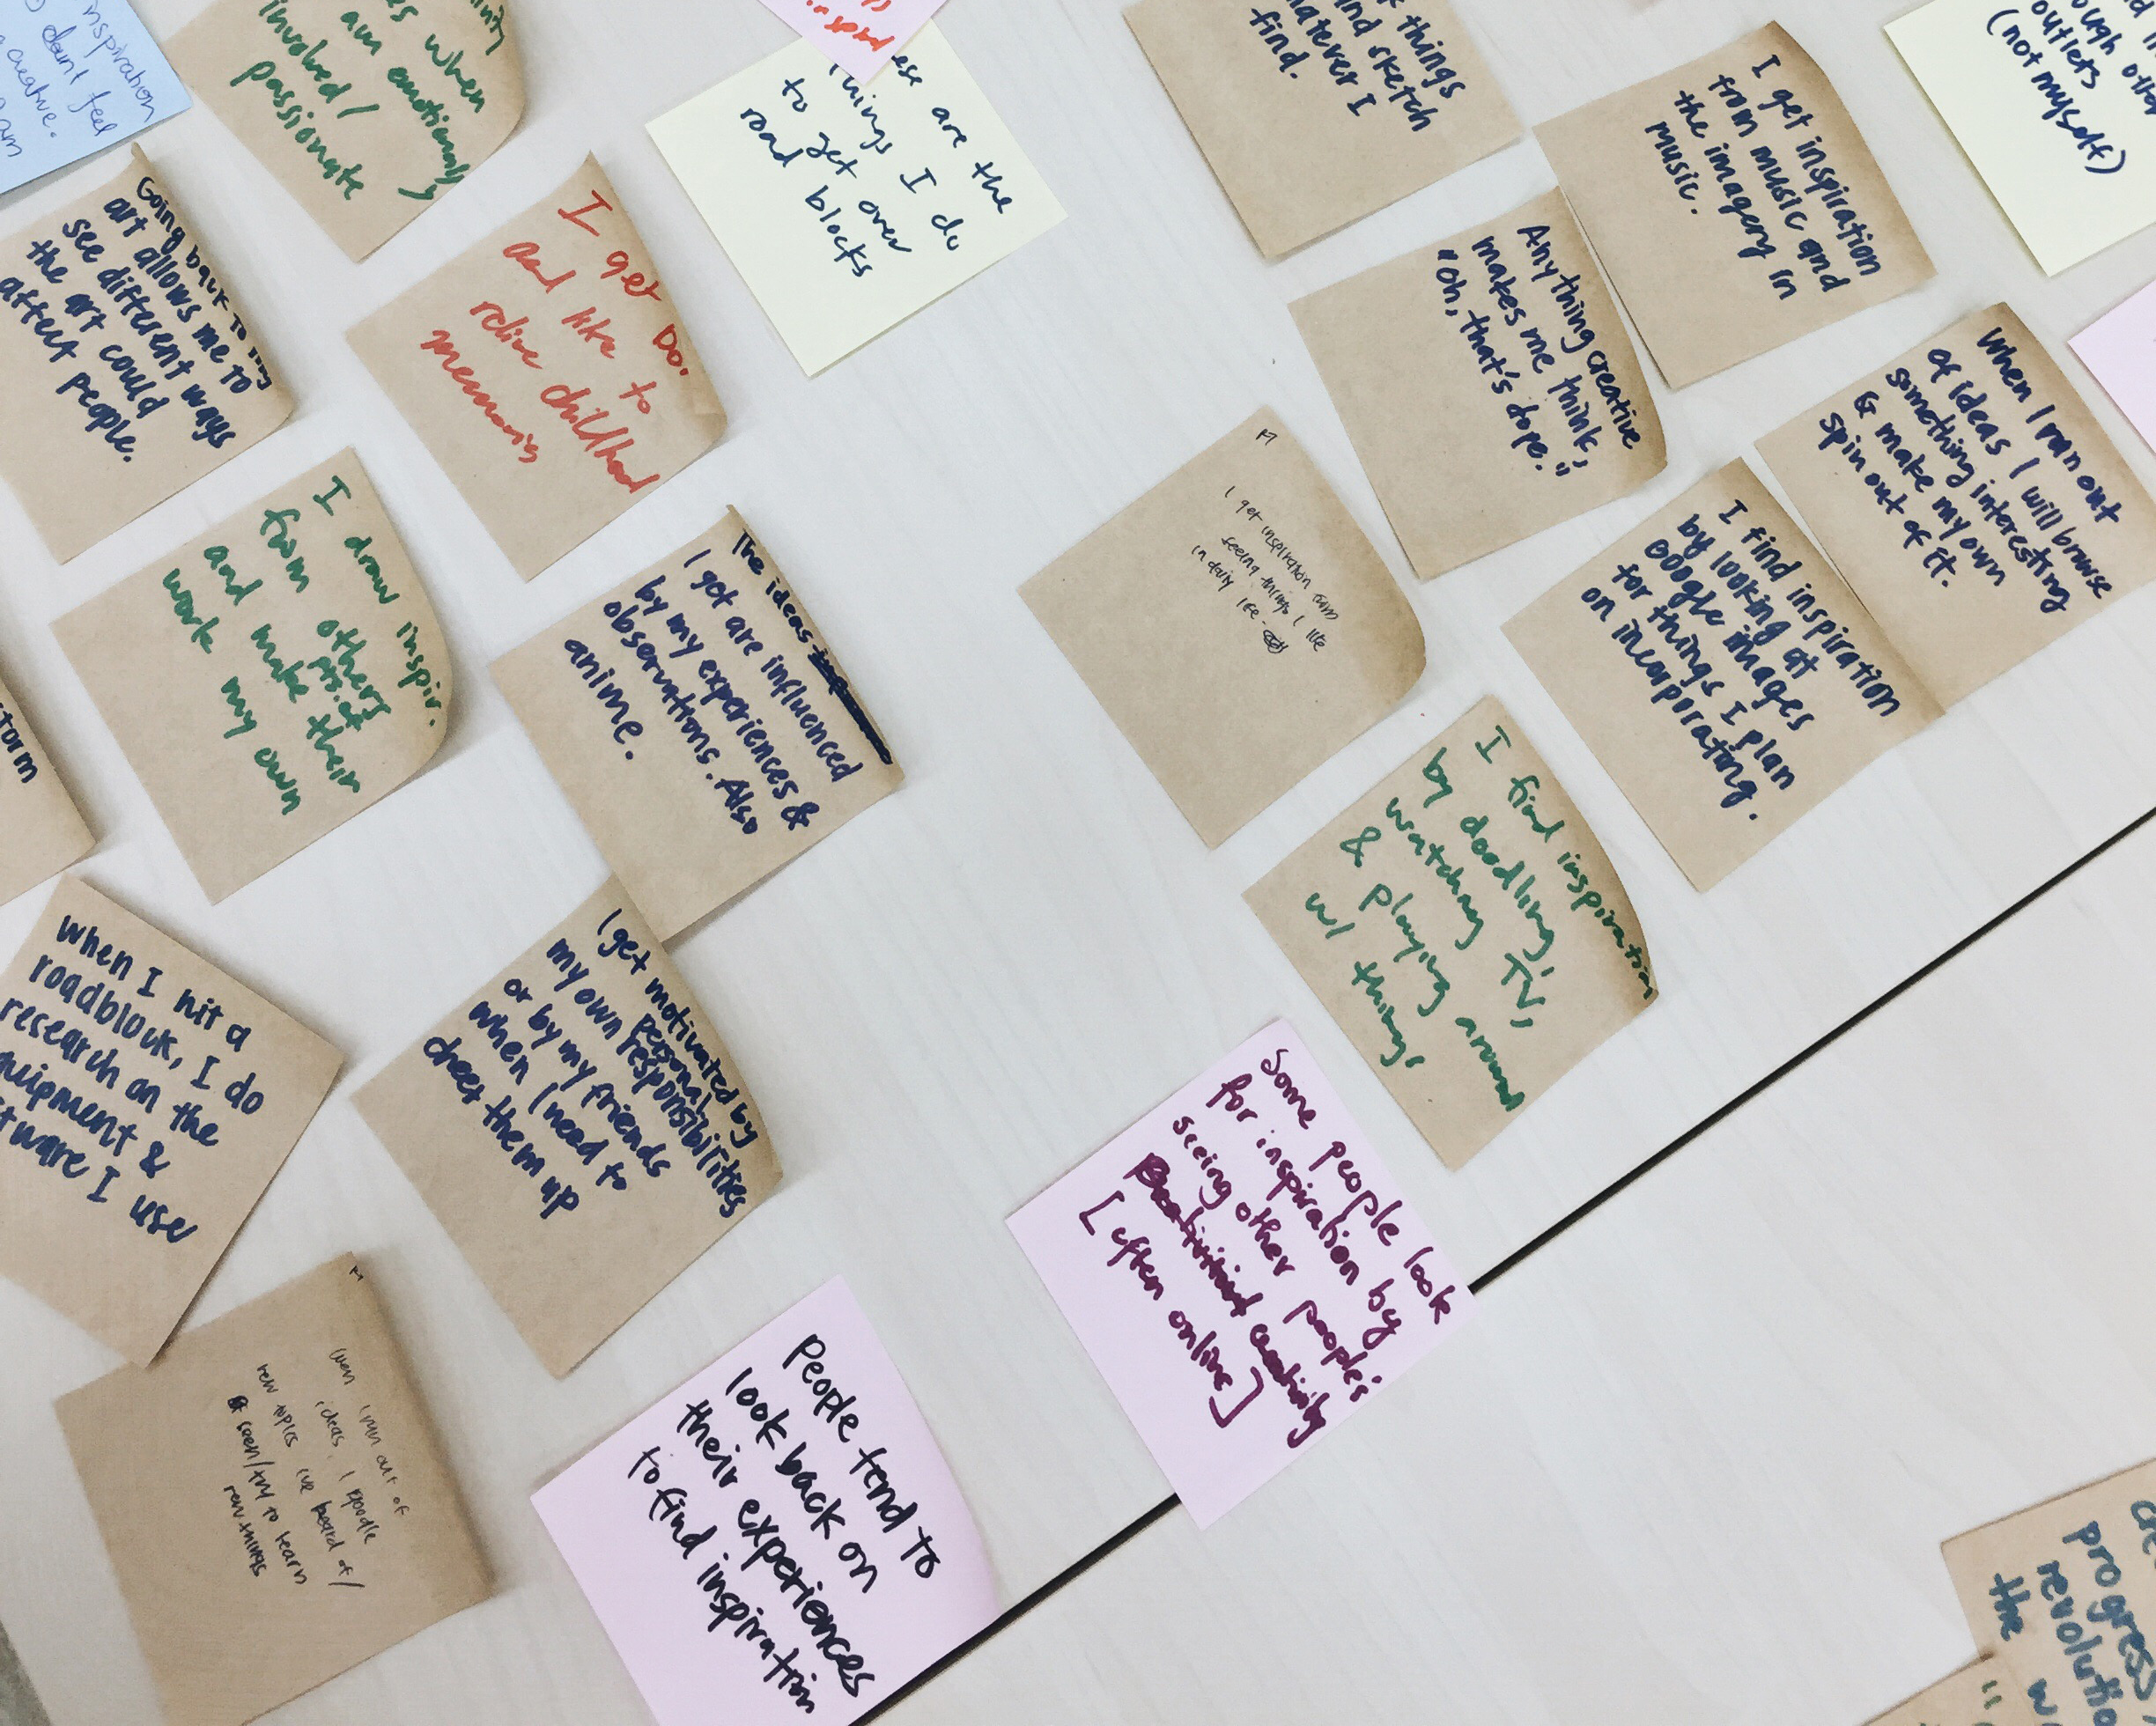 inspiration
dont feel
creative.
am
when
am emotionally
involved/
passionate
inspird
are the
things I do
to get over
road blocks
things
and sketch
whatever I
find.
I get inspiration
from music and
the imagery in
music.
outlets
(not myself)
Going back to my
art allows me to
see different ways
the art could
affect people.
I get DO.
and like to
relive childhood
memories
Anything creative
makes me think,
"oh, that's dope."
When I ran out
of ideas I will browse
something interesting
& make my own
spin out of it.
I draw inspir.
from others
pts. of
and make their
work my own
The ideas
I get are influenced
by my experiences &
observations. Also
anime.
I get inspiration from
seeing things I like
in daily life.
I find inspiration
by looking at
Google images
for things I plan
on incorporating.
storm
I find inspiration
by doodling,
watching TV,
& playing around
w/ things
When I hit a
roadblock, I do
research on the
equipment &
software I use
I get motivated by
personal
my own responsibilities
or by my friends
when I need to
cheer them up
Some people look
for inspiration by
seeing other people's
creativity
[often online]
When I run out of
ideas, I google
new topics ive heard of/
seen/try to learn
new things
People tend to
look back on
their experiences
to find inspiration
progress
the